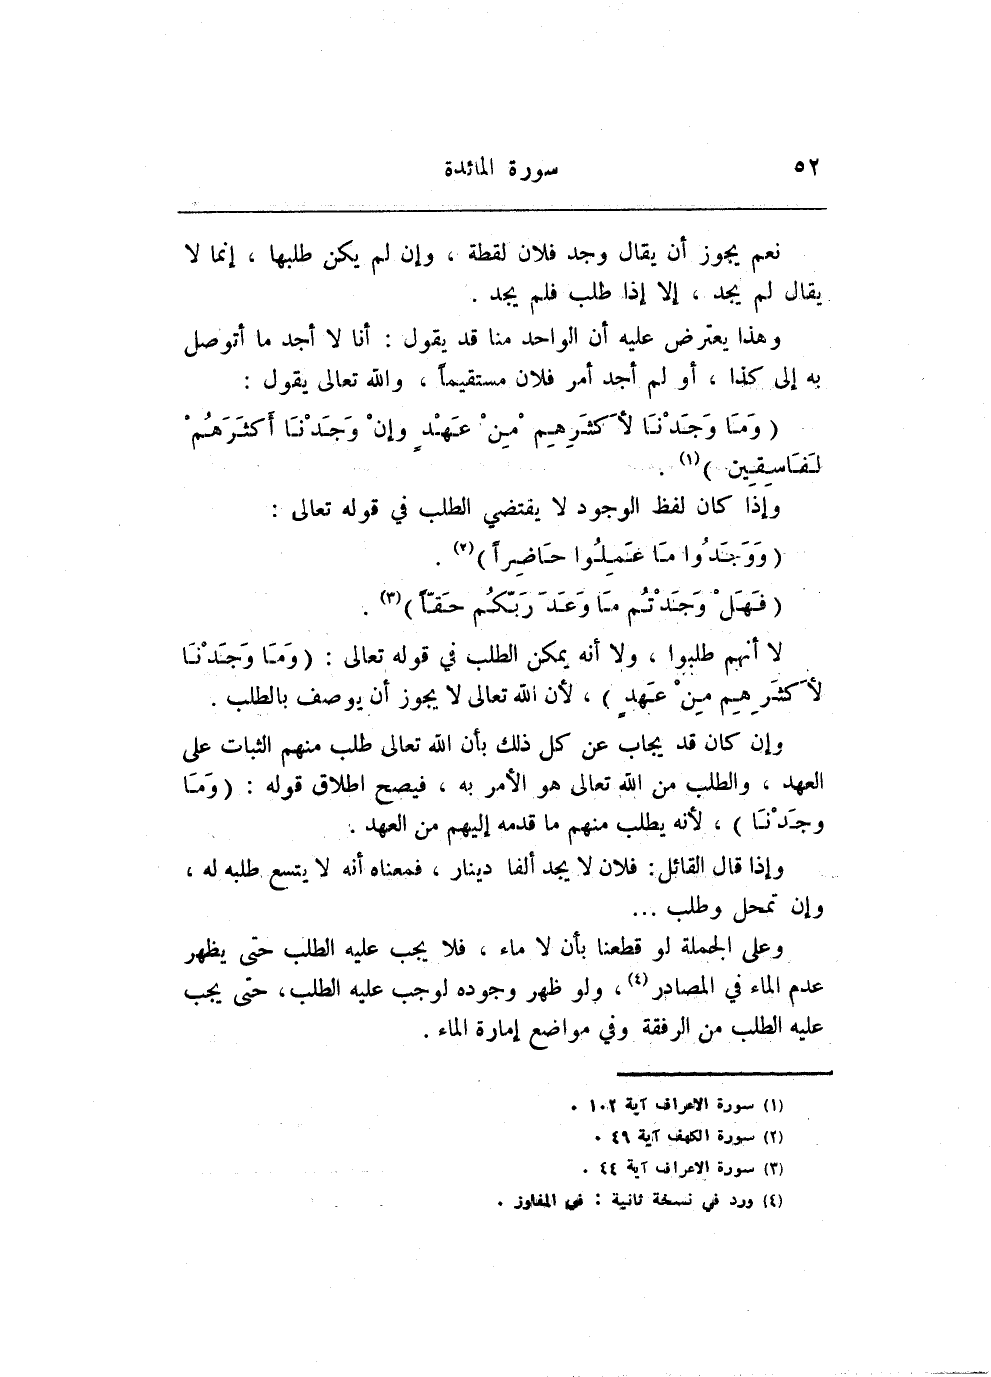 ٥٢
سورة المائدة
نعم يجوز أن يقال وجد فلان لقطة ، وإن لم يكن طلبها ، إنما لا
يقال لم يجد ، إلا إذا طلب فلم يجد .
وهذا يعترض عليه أن الواحد منا قد يقول : أنا لا أجد ما أتوصل
به إلى كذا ، أو لم أجد أمر فلان مستقيماً ، والله تعالى يقول :
( وَمَا وَجَدْنَا لأَكثَرِهِم مِنْ عَهْدٍ وإنْ وَجَدْنَا أَكثَرَهُمْ
لَفَاسِقِين )(١) .
وإذا كان لفظ الوجود لا يقتضي الطلب في قوله تعالى :
( وَوَجَدُوا مَا عَمِلُوا حَاضِراً )(٢) .
( فَهَلْ وَجَدْتُم مَا وَعَدَ رَبّكُم حَقّاً )(٣) .
لا أنهم طلبوا ، ولا أنه يمكن الطلب في قوله تعالى : ( وَمَا وَجَدْنَا
لأَكثَرِهِم مِنْ عَهدٍ ) ، لأن الله تعالى لا يجوز أن يوصف بالطلب .
وإن كان قد يجاب عن كل ذلك بأن الله تعالى طلب منهم الثبات على
العهد ، والطلب من الله تعالى هو الأمر به ، فيصح اطلاق قوله : ( وَمَا
وجَدْنَا ) ، لأنه يطلب منهم ما قدمه إليهم من العهد .
وإذا قال القائل : فلان لا يجد ألفا دينار ، فمعناه أنه لا يتسع طلبه له ،
وإن تمحل وطلب ...
وعلى الجملة لو قطعنا بأن لا ماء ، فلا يجب عليه الطلب حتى يظهر
عدم الماء في المصادر(٤) ، ولو ظهر وجوده لوجب عليه الطلب ، حتى يجب
عليه الطلب من الرفقة وفي مواضع إمارة الماء .
(١) سورة الاعراف آية ١٠٢ .
(٢) سورة الكهف آية ٤٩ .
(٣) سورة الاعراف آية ٤٤ .
(٤) ورد في نسخة ثانية : في المفاوز .